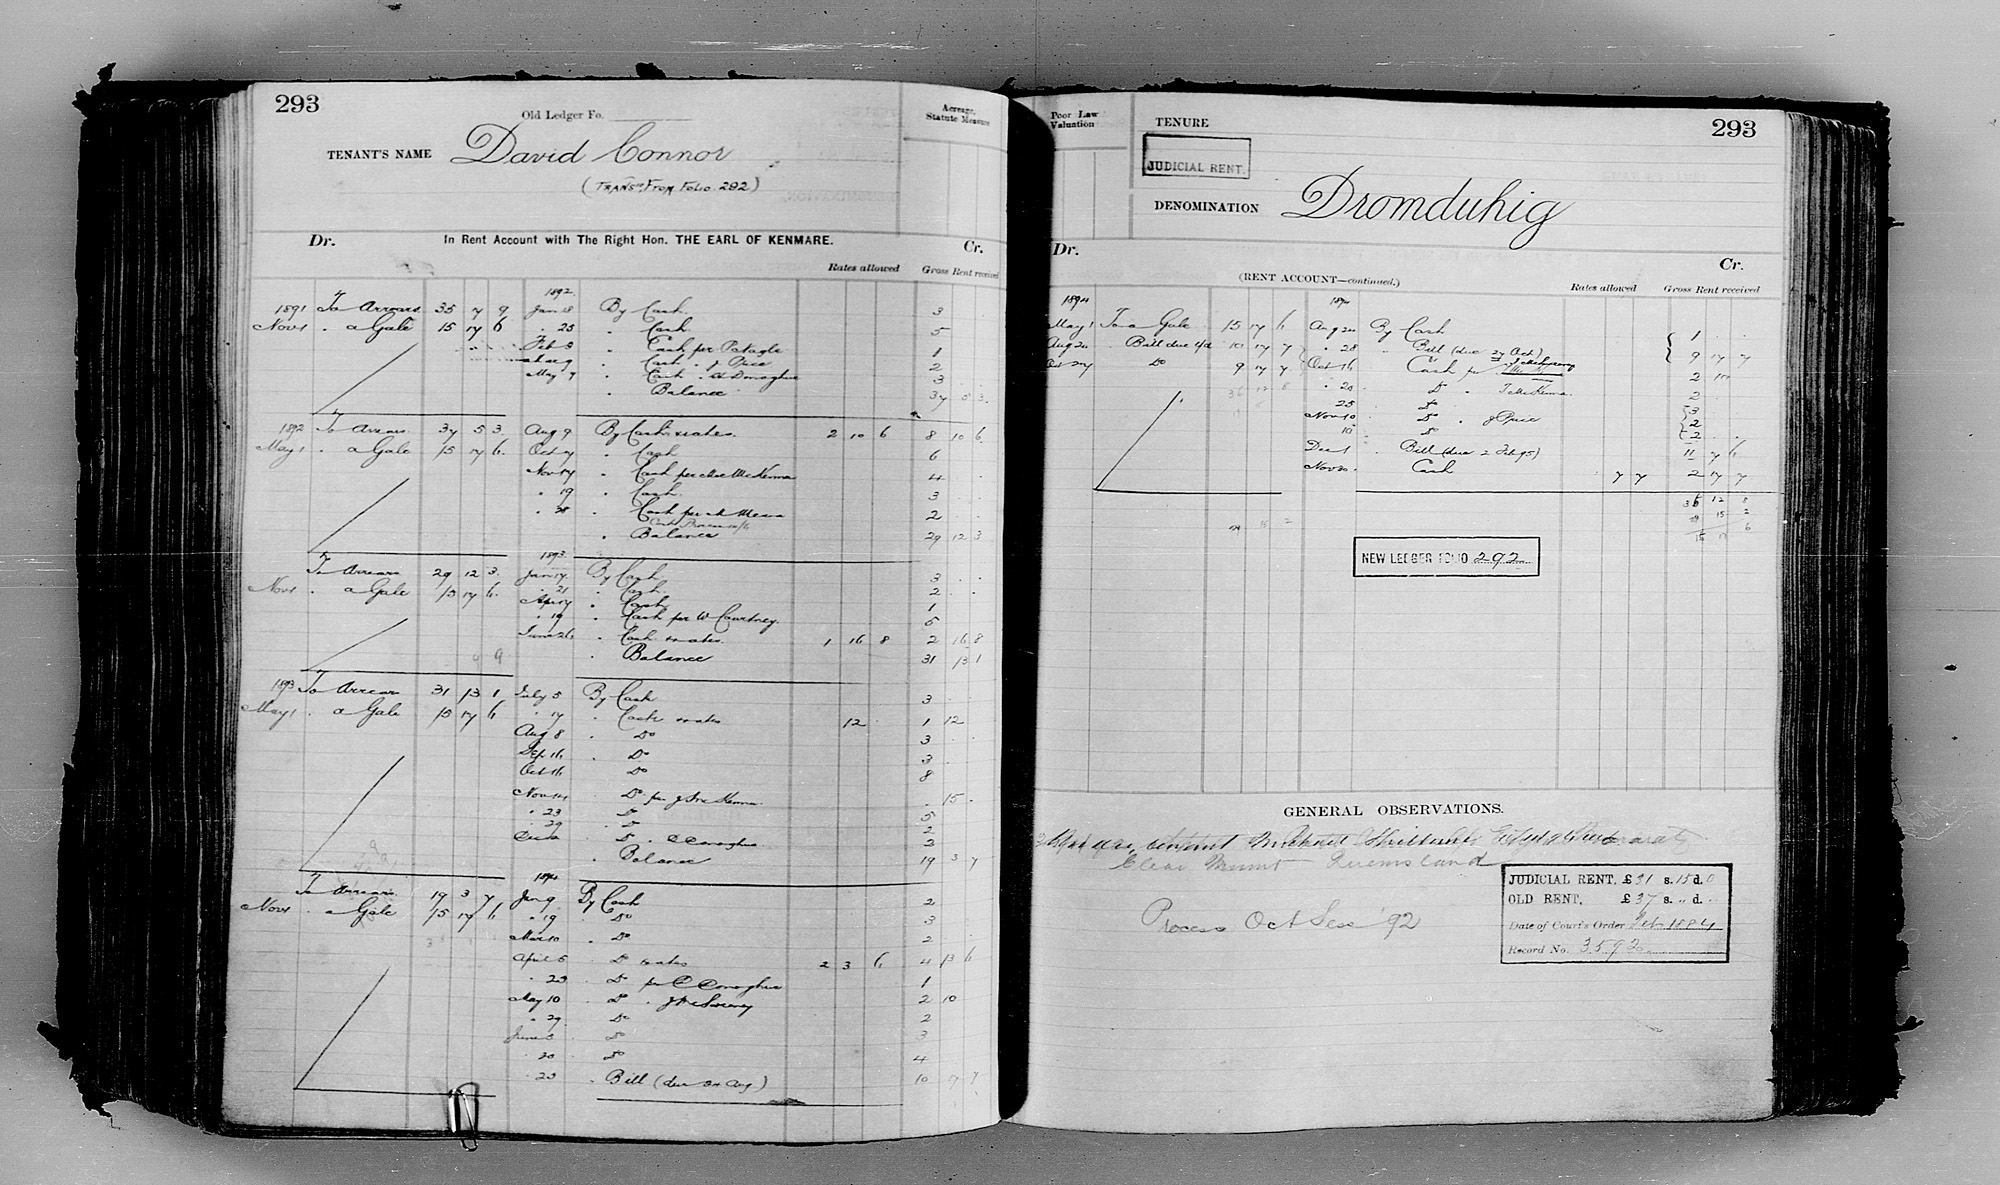 293
Old Ledger Fo.
Acreage, Statute Measure
TENANT'S NAME David Connor
(TRANSD. FROM FOLIO 292)
Dr. In Rent Account with The Right Hon. THE EARL OF KENMARE. Cr.
Rates allowed Gross Rent received
1892
1891 To Arrears 35 7 9 Jan 18 By Cash 3
Nov 1 " a Gale 15 17 6 " 25 " Cash 5
Feb 8 " Cash per 1
" Cash " J Price 2
May 7 " Cash " Donoghue 3
" Balance 37 5 3
1892 To Arrears 37 5 3 Aug 9 By Cash & rates 2 10 6 8 10 6
May 1 " a Gale 15 17 6 Oct 7 " Cash 6
Nov 14 " Cash per McKenna 4
" 19 " Cash 3
" 28 " Cash per 2
" Balance 29 12 3
1893
To Arrears 29 12 3 Jan 17 By Cash 3
Nov 1 " a Gale 15 17 6 " 21 " Cash 2
Apr 17 " Cash 1
" 19 " Cash per W Courtney 5
June 26 " Cash & rates 1 16 8 2 16 8
" Balance 31 13 1
1893 To Arrears 31 13 1 July 5 By Cash 3
May 1 " a Gale 15 17 6 " 17 " Cash & rates 12 1 12
Aug 8 " Do 3
Sep 16 " Do 3
Oct 16 Do 8
Nov 14 Do per J McKenna 15
" 23 Do 5
" 29 Do 2
Do " C Donoghue 2
" Balance 19 3 7
1894
To Arrears 19 3 7 Jan 9 By Cash 2
Nov 1 " a Gale 15 17 6 " 19 " Do 3
Mar 10 " Do 2
April 5 " Do & rates 2 3 6 4 13 6
" 23 " Do per C Donoghue 1
May 10 " Do " J McSweeney 2 10
" 29 Do 2
June 5 Do 3
" 20 Do 4
" 23 " Bill (due 24 Aug) 10 7 7
Poor Law Valuation
TENURE
293
JUDICIAL RENT.
DENOMINATION Dromduhig
Dr. Cr.
(RENT ACCOUNT—continued.)
Rates allowed Gross Rent received
1894 1894
May 1 To a Gale 15 17 6 Aug 24 By Cash 1
Aug 24 " Bill due r/d 10 7 7 " 28 " Bill (due 27 Oct) 9 17 7
Oct 27 Do 9 17 7 Oct 16 Cash per 2 10
" 20 Do " J McKenna 2
25 Do 3
Nov 10 Do " J Price 2
10 Do 2
Dec 1 " Bill (due 2 Feb 95) 11 7 6
Nov 20 Cash 7 7 2 17 7
36 12 8
NEW LEDGER FOLIO 292
GENERAL OBSERVATIONS.
Clear Mount Queensland
Process Oct Sess '92
JUDICIAL RENT, £31 s. 15 d. 0
OLD RENT, £37 s. " d. "
Date of Court's Order Feb 1884
Record No. 3592